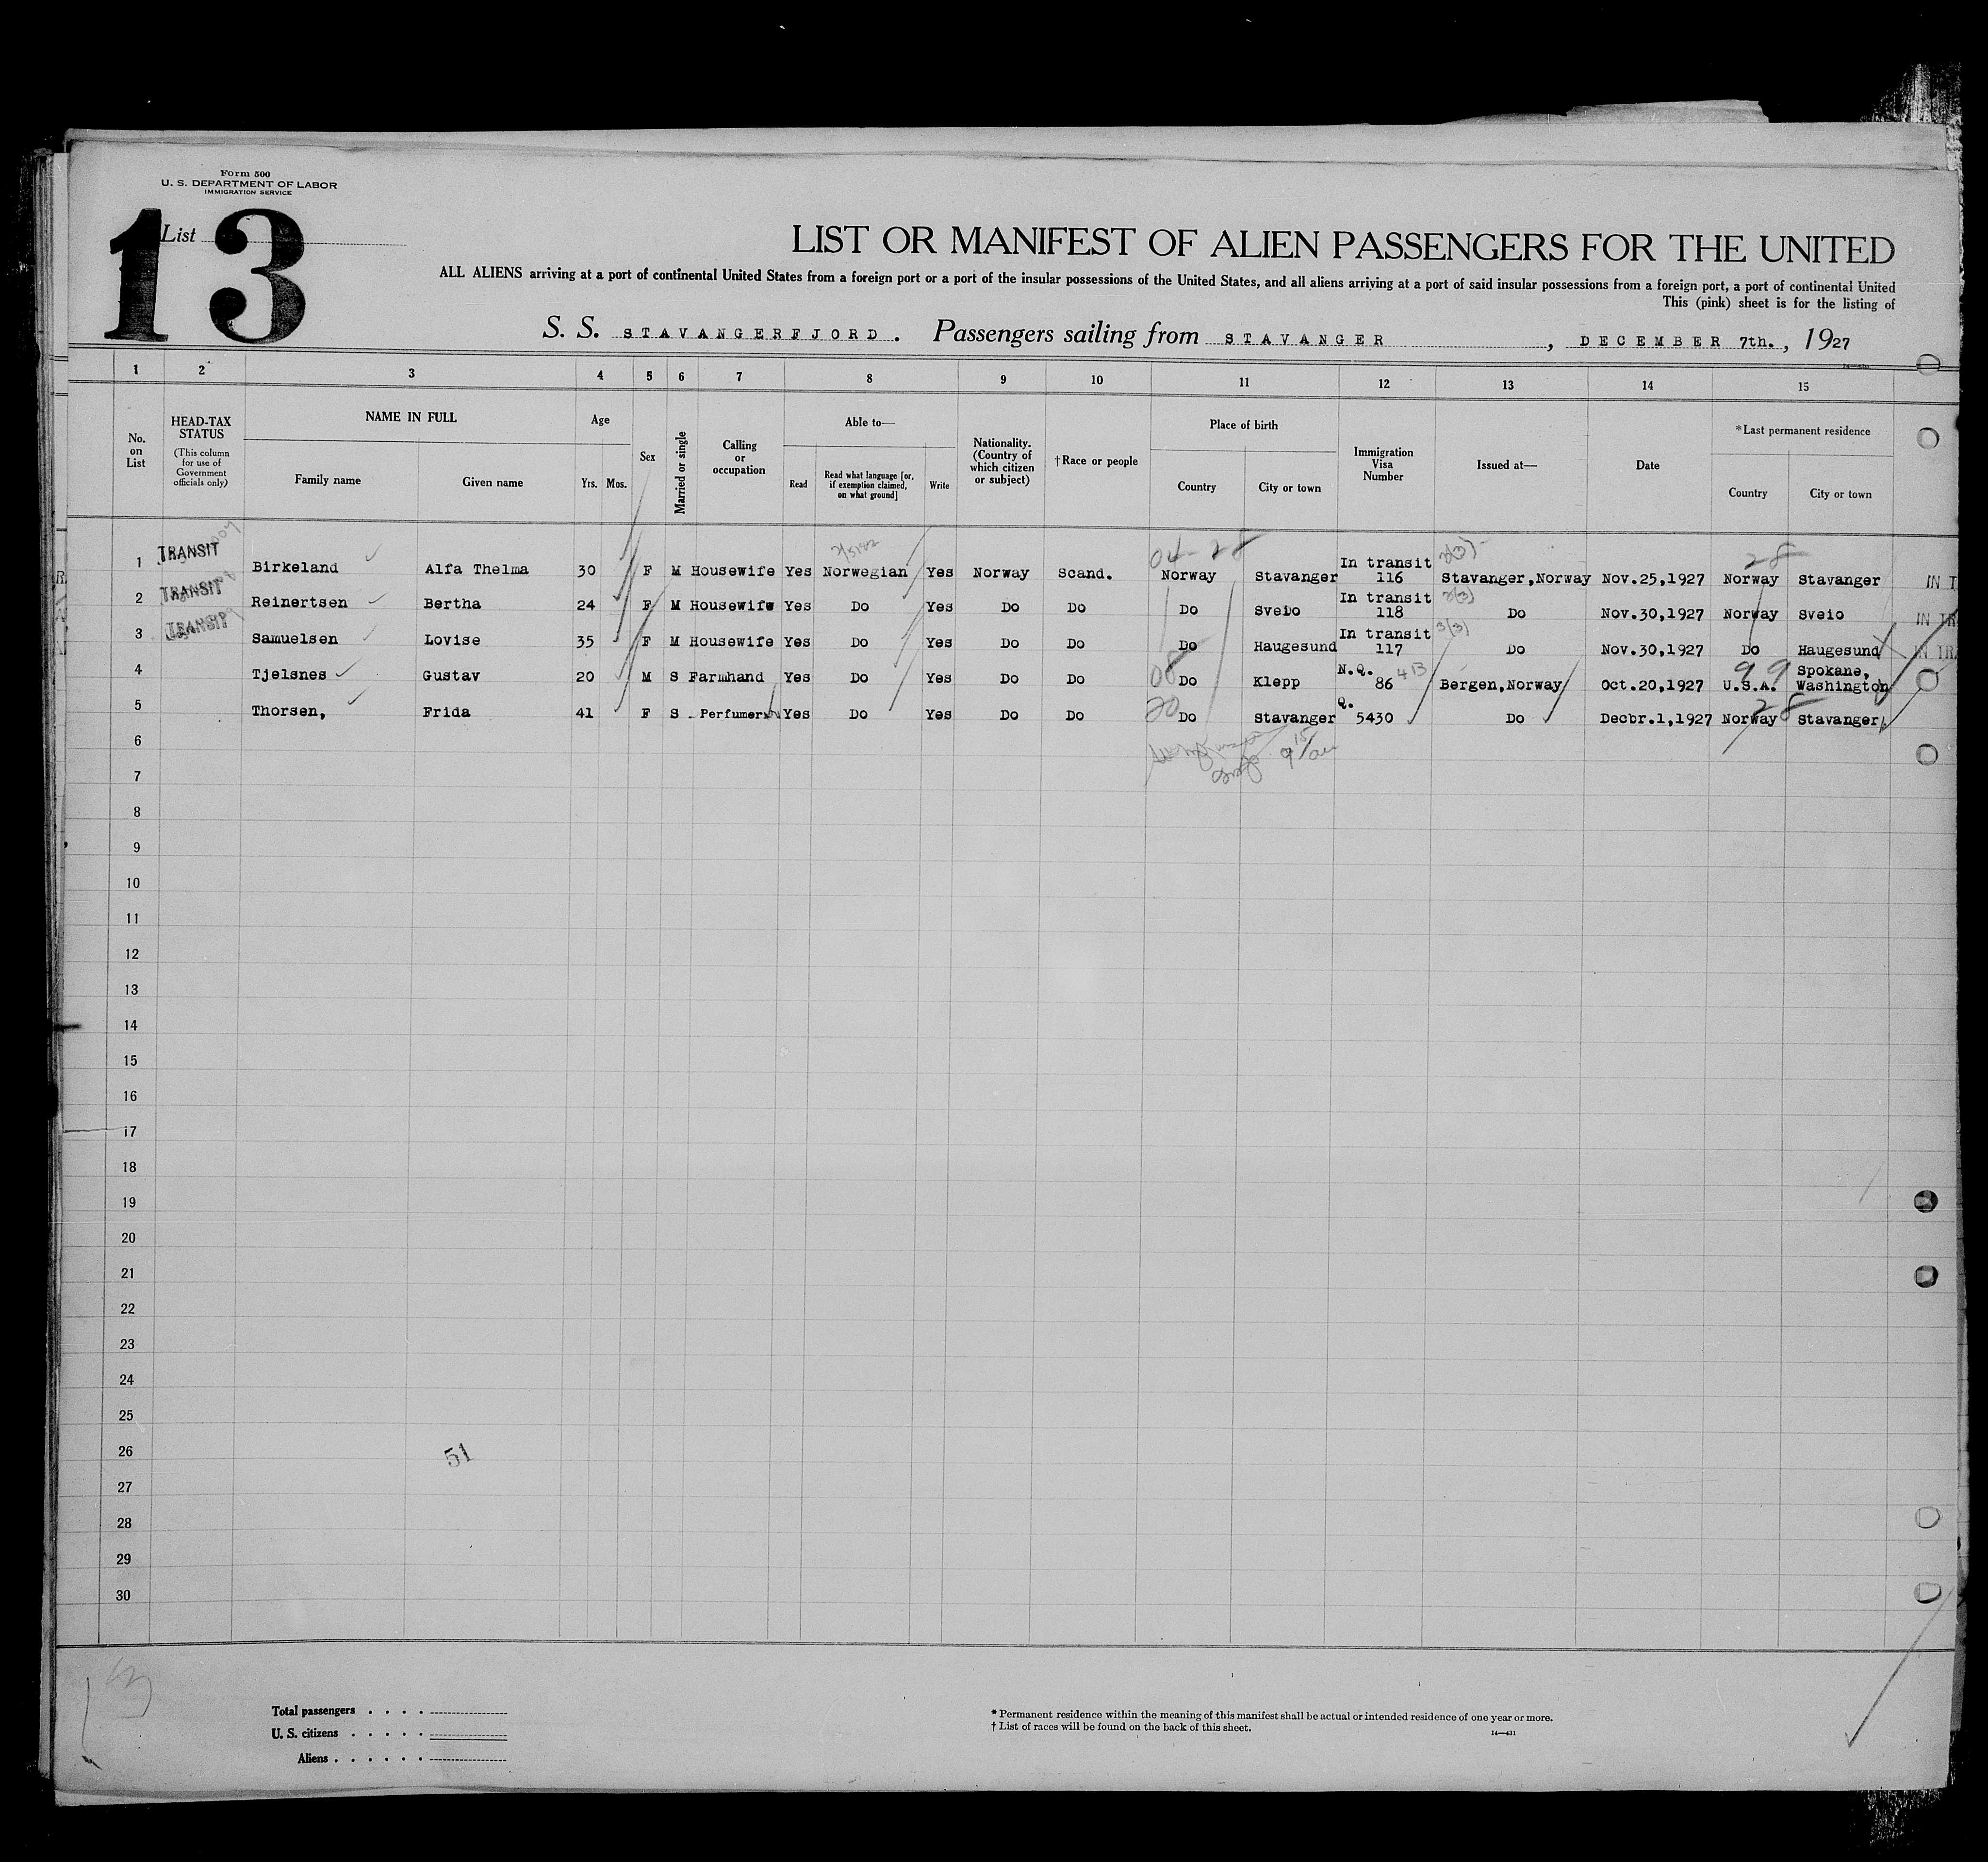 Form 500
U. S. DEPARTMENT OF LABOR
IMMIGRATION SERVICE
List
13
LIST OR MANIFEST OF ALIEN PASSENGERS FOR THE UNITED
ALL ALIENS arriving at a port of continental United States from a foreign port or a port of the insular possessions of the United States, and all aliens arriving at a port of said insular possessions from a foreign port, a port of continental United
This (pink) sheet is for the listing of
S. S. STAVANGERFJORD. Passengers sailing from STAVANGER, DECEMBER 7th., 1927
1 2 3 4 5 6 7 8 9 10 11 12 13 14 15
No. on List
HEAD-TAX STATUS
(This column for use of Government officials only)
NAME IN FULL
Family name Given name
Age
Yrs. Mos.
Sex
Married or single
Calling or occupation
Able to—
Read
Read what language [or, if exemption claimed, on what ground]
Write
Nationality. (Country of which citizen or subject)
†Race or people
Place of birth
Country City or town
Immigration Visa Number
Issued at—
Date
*Last permanent residence
Country City or town
04-28 28
1 TRANSIT Birkeland Alfa Thelma 30 F M Housewife Yes Norwegian Yes Norway Scand. Norway Stavanger In transit 116 Stavanger,Norway Nov.25,1927 Norway Stavanger IN T
2 TRANSIT Reinertsen Bertha 24 F M Housewife Yes Do Yes Do Do Do Sveio In transit 118 Do Nov.30,1927 Norway Sveio IN TR
3 TRANSIT Samuelsen Lovise 35 F M Housewife Yes Do Yes Do Do Do Haugesund In transit 117 Do Nov.30,1927 Do Haugesund IN TRA
4 Tjelsnes Gustav 20 M S Farmhand Yes Do Yes Do Do 08 Do Klepp N.Q. 86 4B Bergen,Norway Oct.20,1927 99 U.S.A. Spokane, Washington
5 Thorsen, Frida 41 F S. Perfumer Yes Do Yes Do Do 20 Do Stavanger Q. 5430 Do Decbr.1,1927 28 Norway Stavanger
6
7
8
9
10
11
12
13
14
15
16
17
18
19
20
21
22
23
24
25
26
51
27
28
29
30
13
Total passengers . . . .
U. S. citizens . . . . .
Aliens . . . . . .
* Permanent residence within the meaning of this manifest shall be actual or intended residence of one year or more.
† List of races will be found on the back of this sheet.
14—431